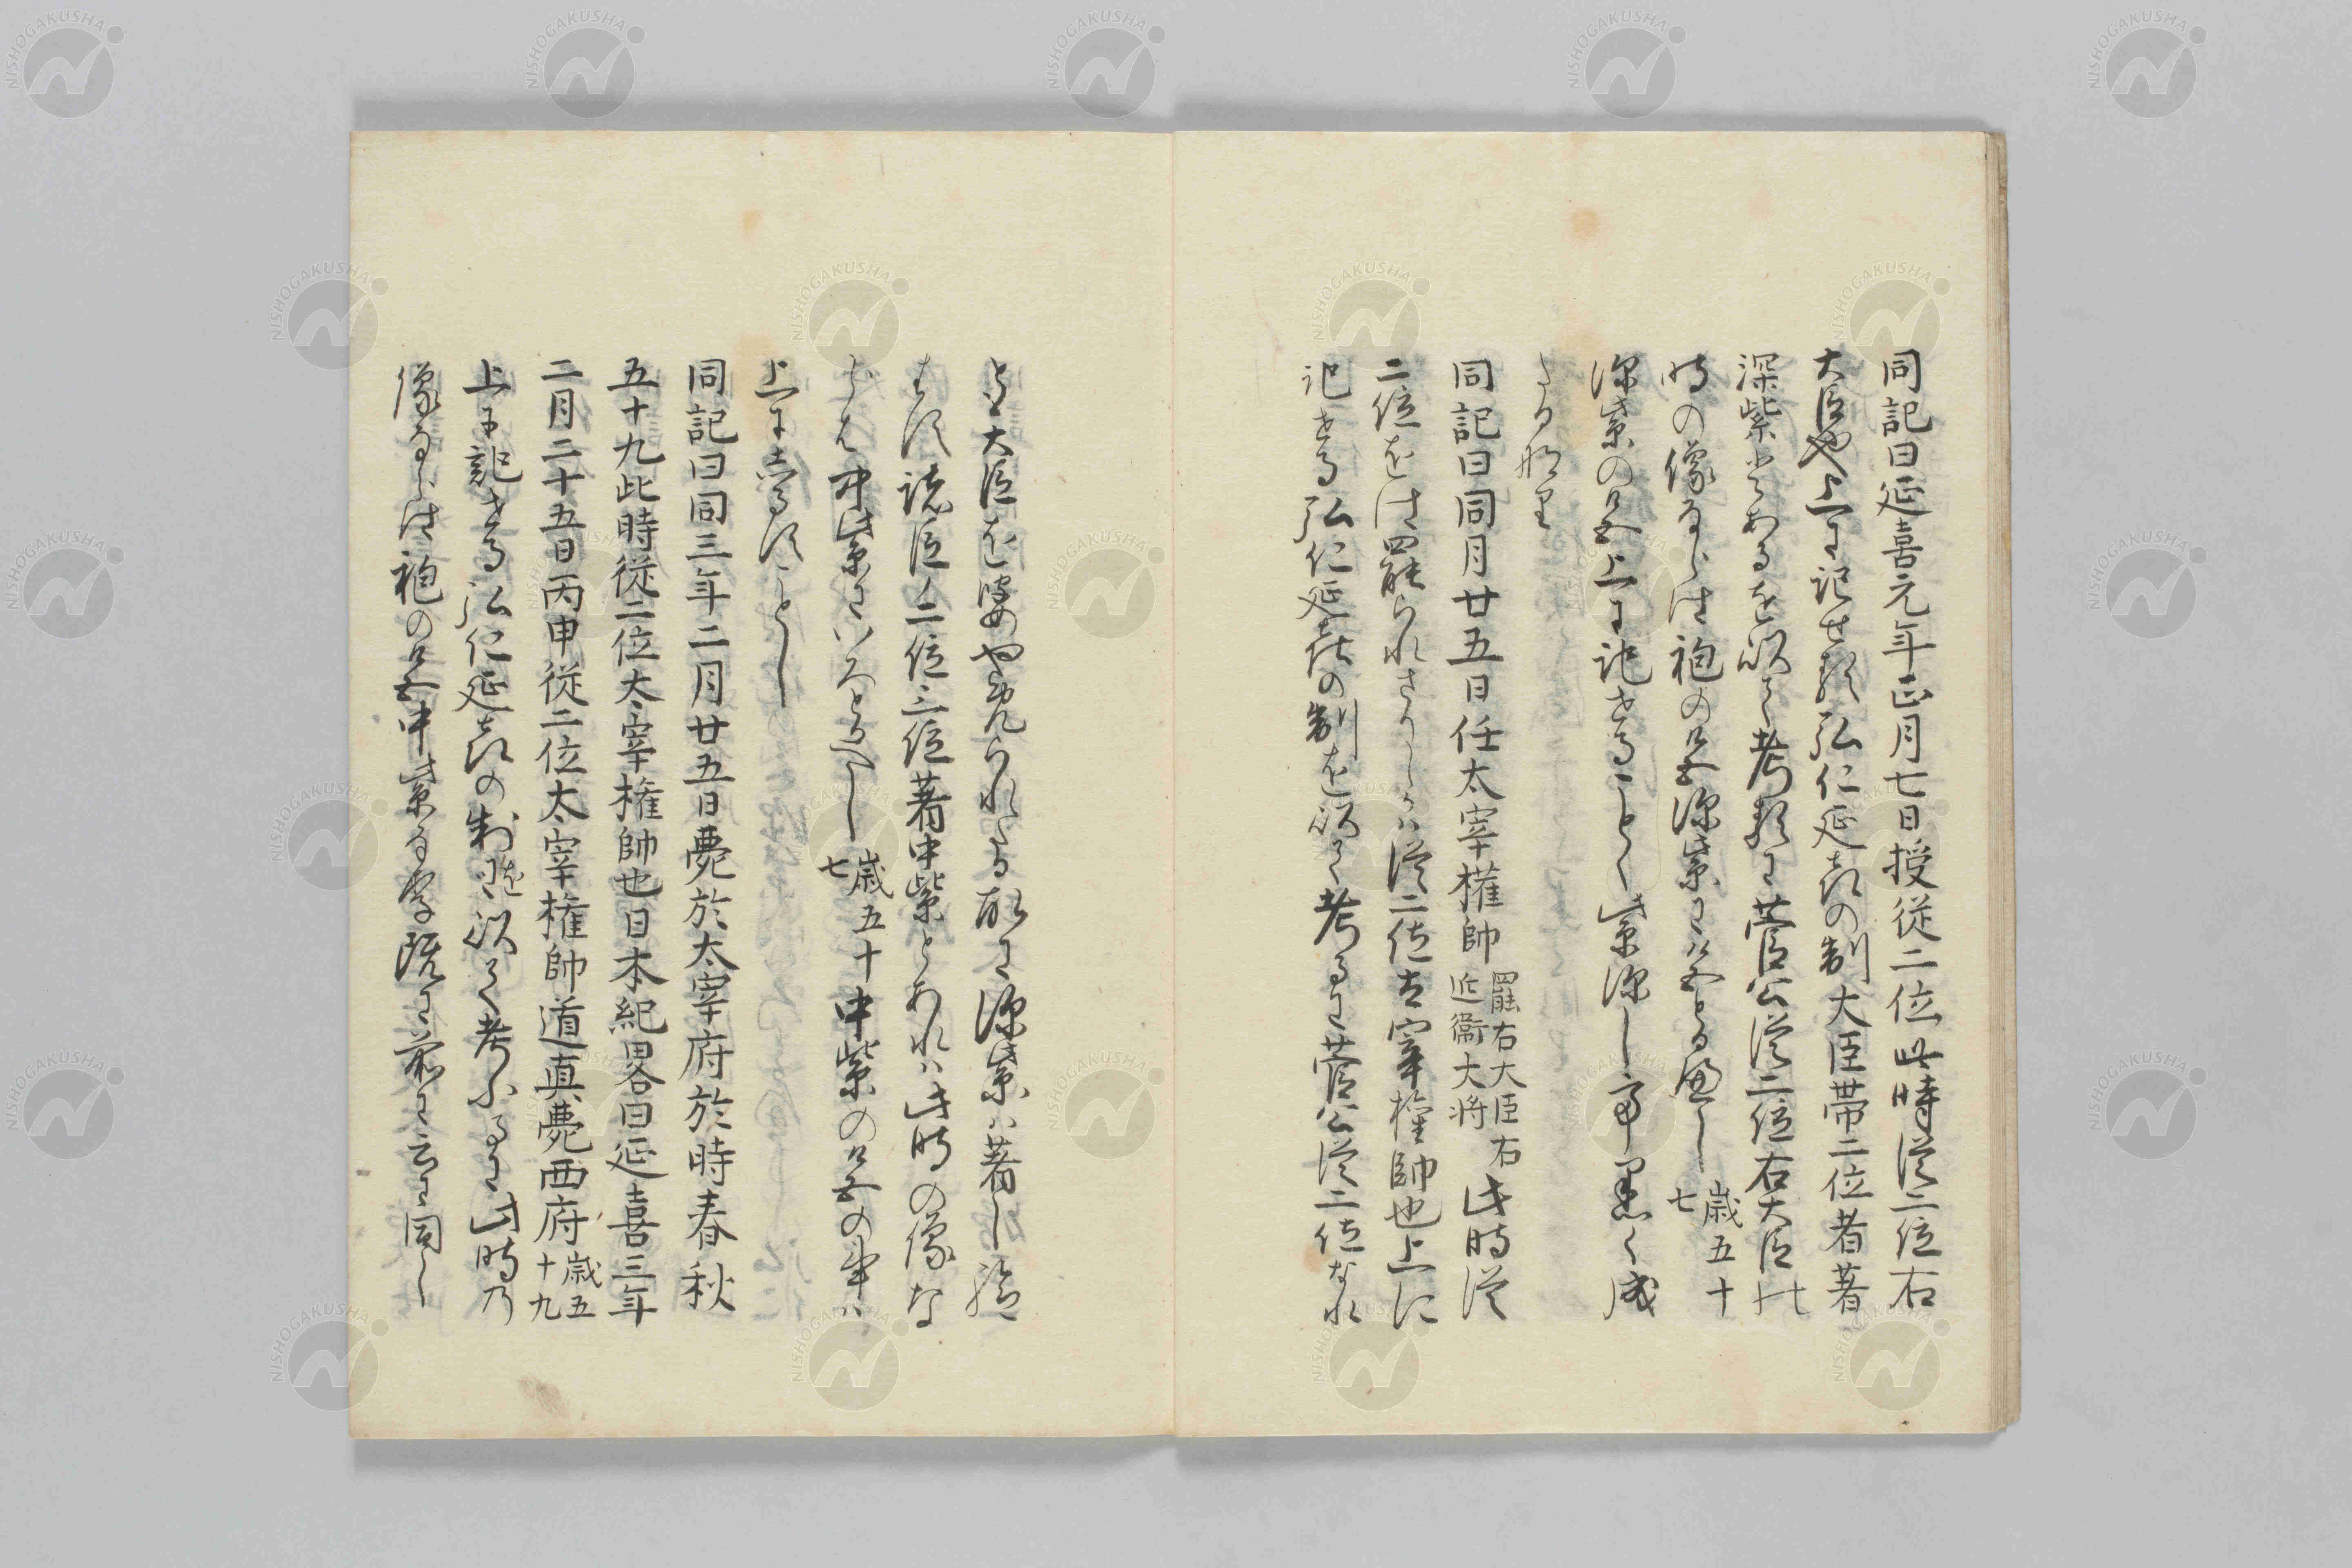 同記曰延喜元年正月七日授従二位此時従二位右
大臣也上に記せる弘仁延喜の制大臣帯二位者著
深紫とあるを以て考るに菅公従二位右大臣の
時の像ならは袍の色深紫に色とるへし歳五十七
深紫の色上に記せることく紫深し市黒く成
たる那里
同記曰同月廿五日任太宰権帥罷右大臣右近衞大将此時従
二位をは罷られさりしかは従二位太宰権帥也上に
記せる弘仁延喜の制を以て考るに菅公従二位なれ
とも大臣をやめられたる故に深紫は著し給
はす諸臣二位三位著中紫とあれは此時の像な
らは中紫にいろとるへし歳五十七中紫の色の事は
上にしるすことし
同記曰同三年二月廿五日薨於太宰府於時春秋
五十九此時従二位太宰権帥也日本紀畧曰延喜三年
二月二十五日丙申従二位太宰権帥道真薨西府歳五十九
上に記せる弘仁延喜の制を以て考ふるに此時乃
像ならは袍の色中紫なる事既に前に云に同し
NISHOGAKUSHA